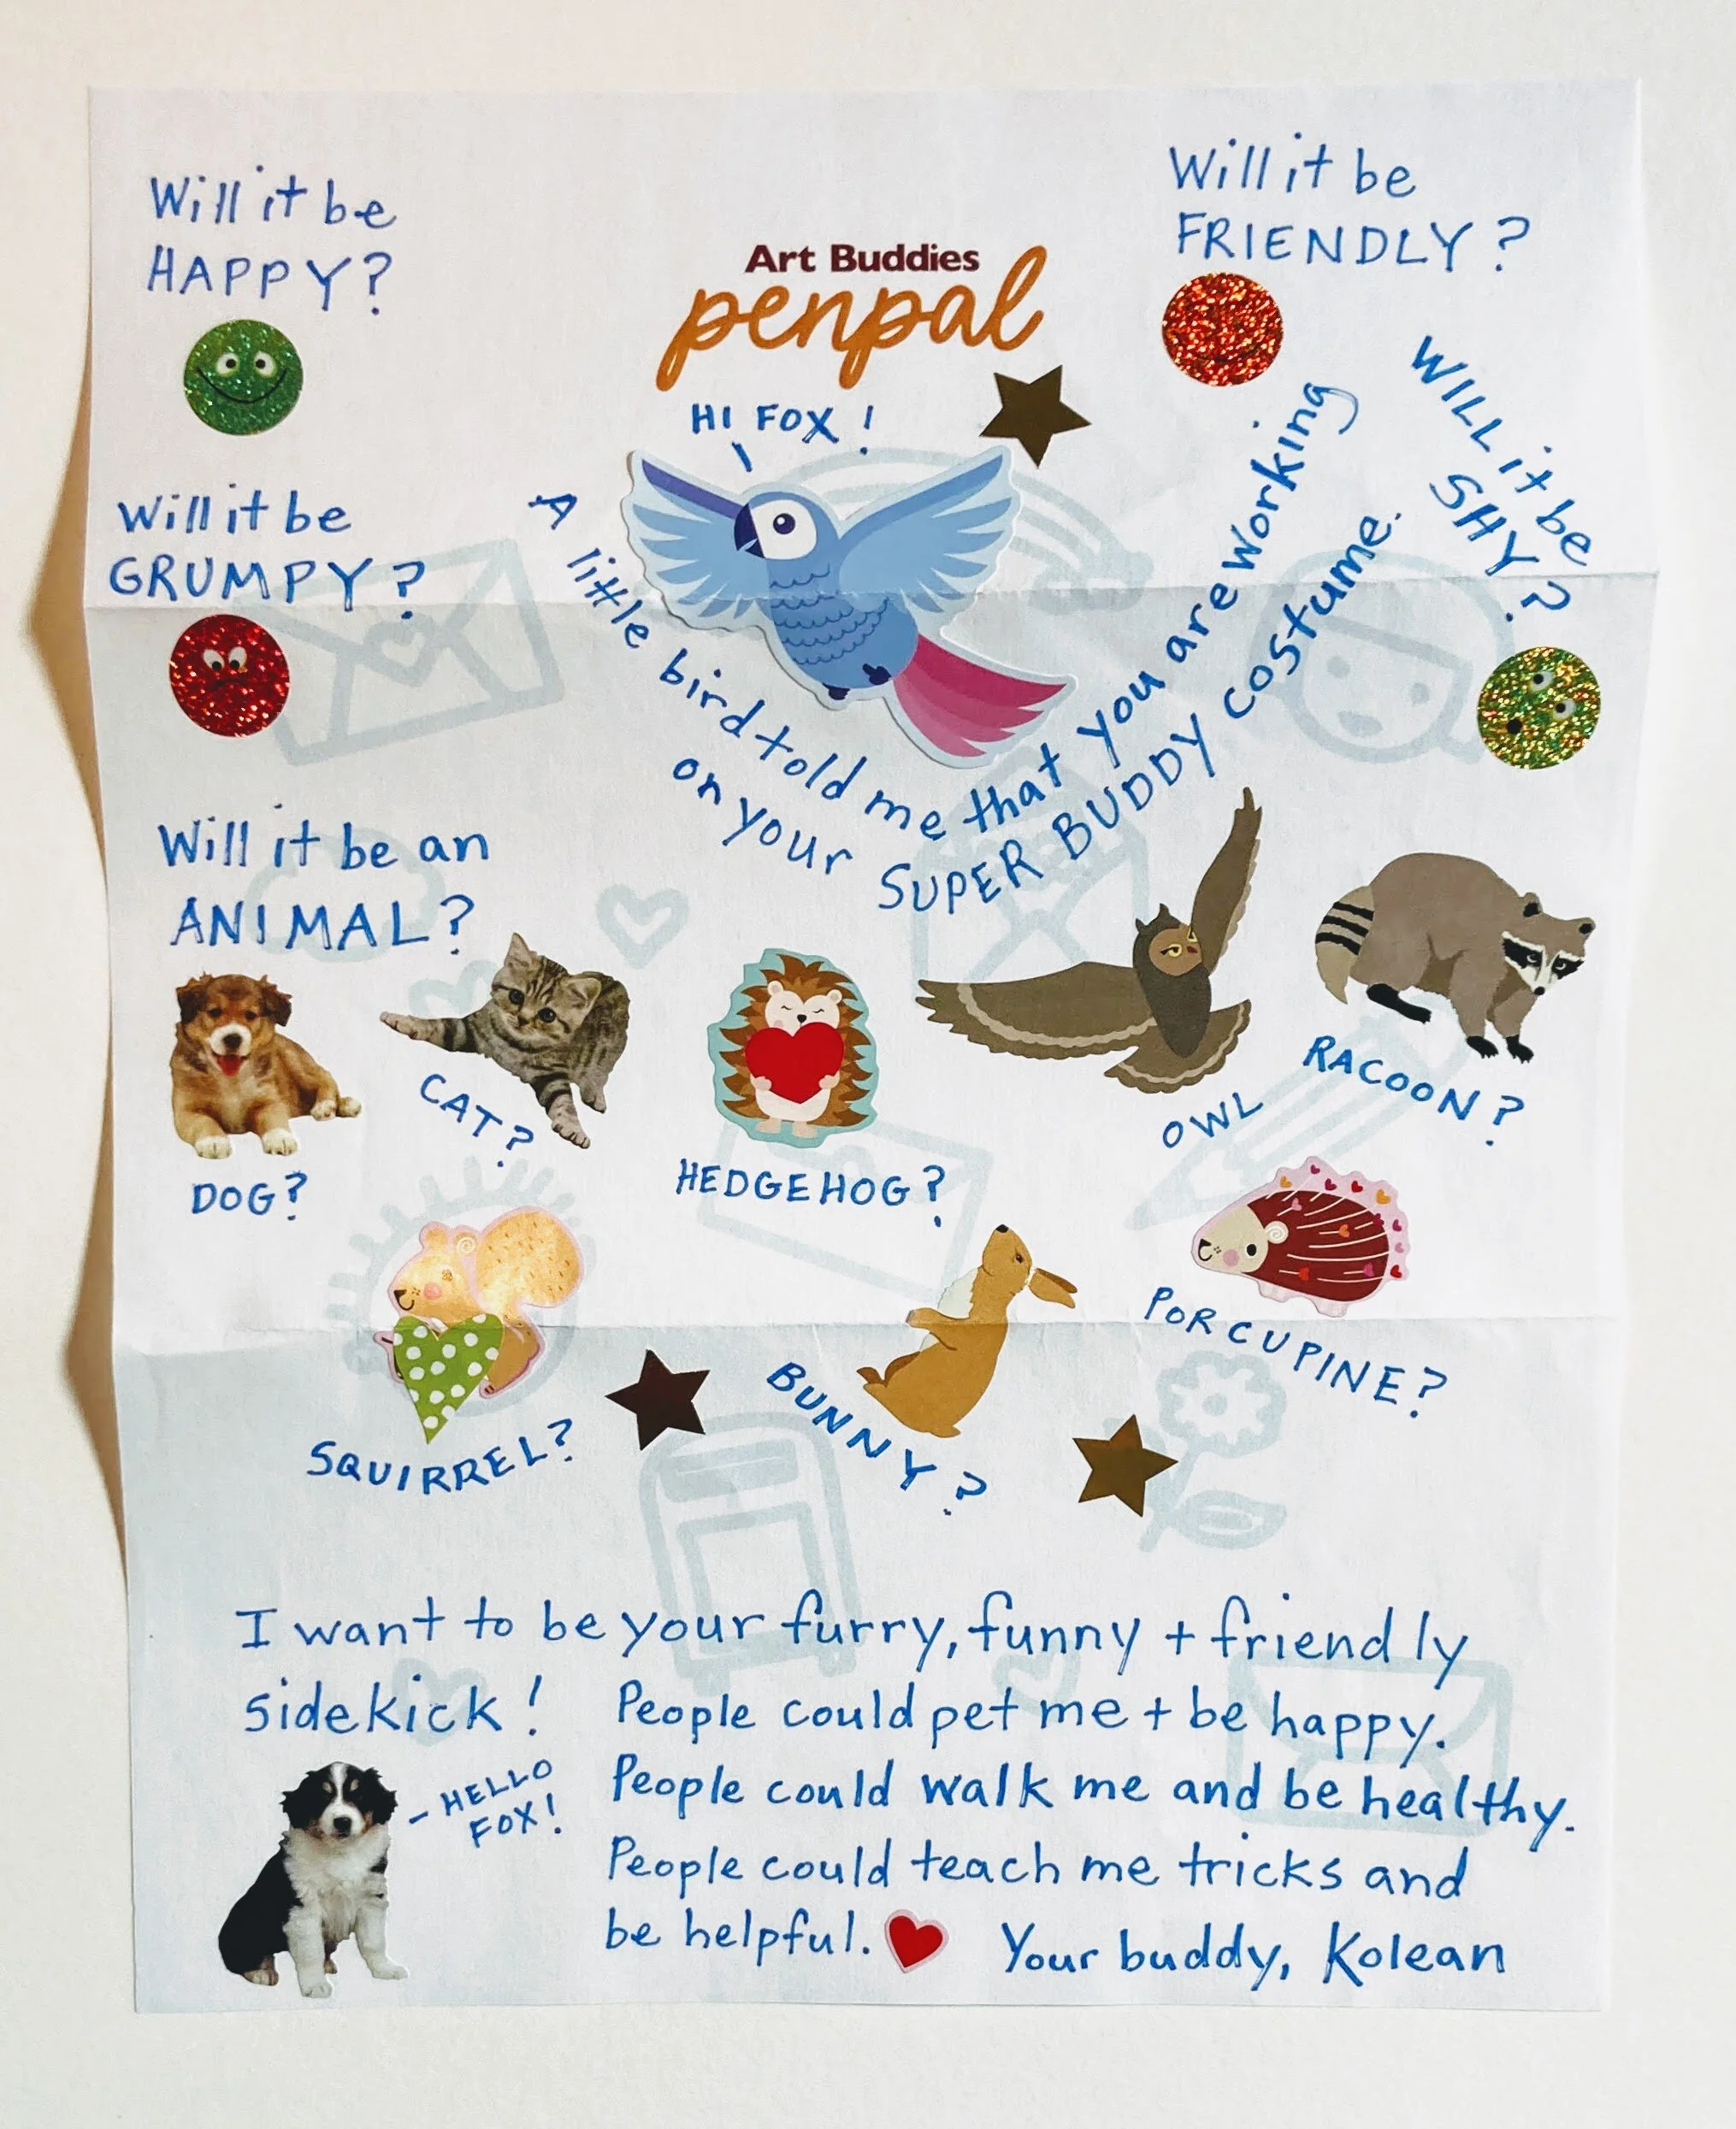 Will it be
HAPPY?
Art Buddies
penpal
Will it be
FRIENDLY?
HI FOX!
Will it be
GRUMPY?
A little bird told me that you are working
on your SUPER BUDDY costume.
WILL it be
SHY?
Will it be an
ANIMAL?
DOG?
CAT?
HEDGEHOG?
OWL
RACOON?
SQUIRREL?
BUNNY?
PORCUPINE?
I want to be your furry, funny + friendly
sidekick! People could pet me + be happy.
- HELLO
FOX!
People could walk me and be healthy.
People could teach me tricks and
be helpful. Your buddy, Kolean